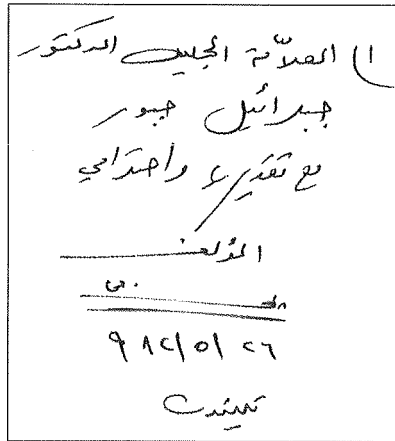 إلى العلاّمة الجليل الدكتور
جبرائيل جبور
مع تقديري واحترامي
المؤلف
٩٨٢/٥/٢٦